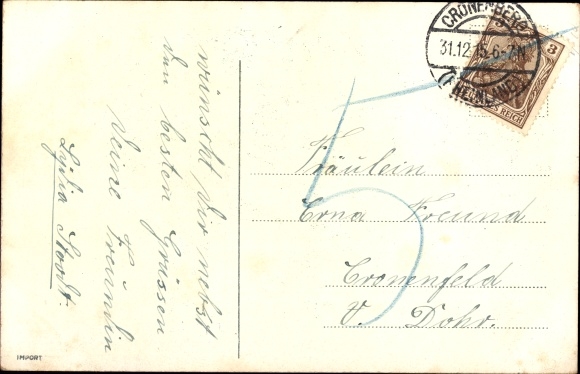 wünscht Dir nebst
den besten Grüssen
Deine Freundin
Lydia Stoodt.
CRONENBERG
31.12.15.6-7N
(RHEINLAND)
3
5
Fräulein
Erna Freund
Cronenfeld
b. Dohr.
IMPORT